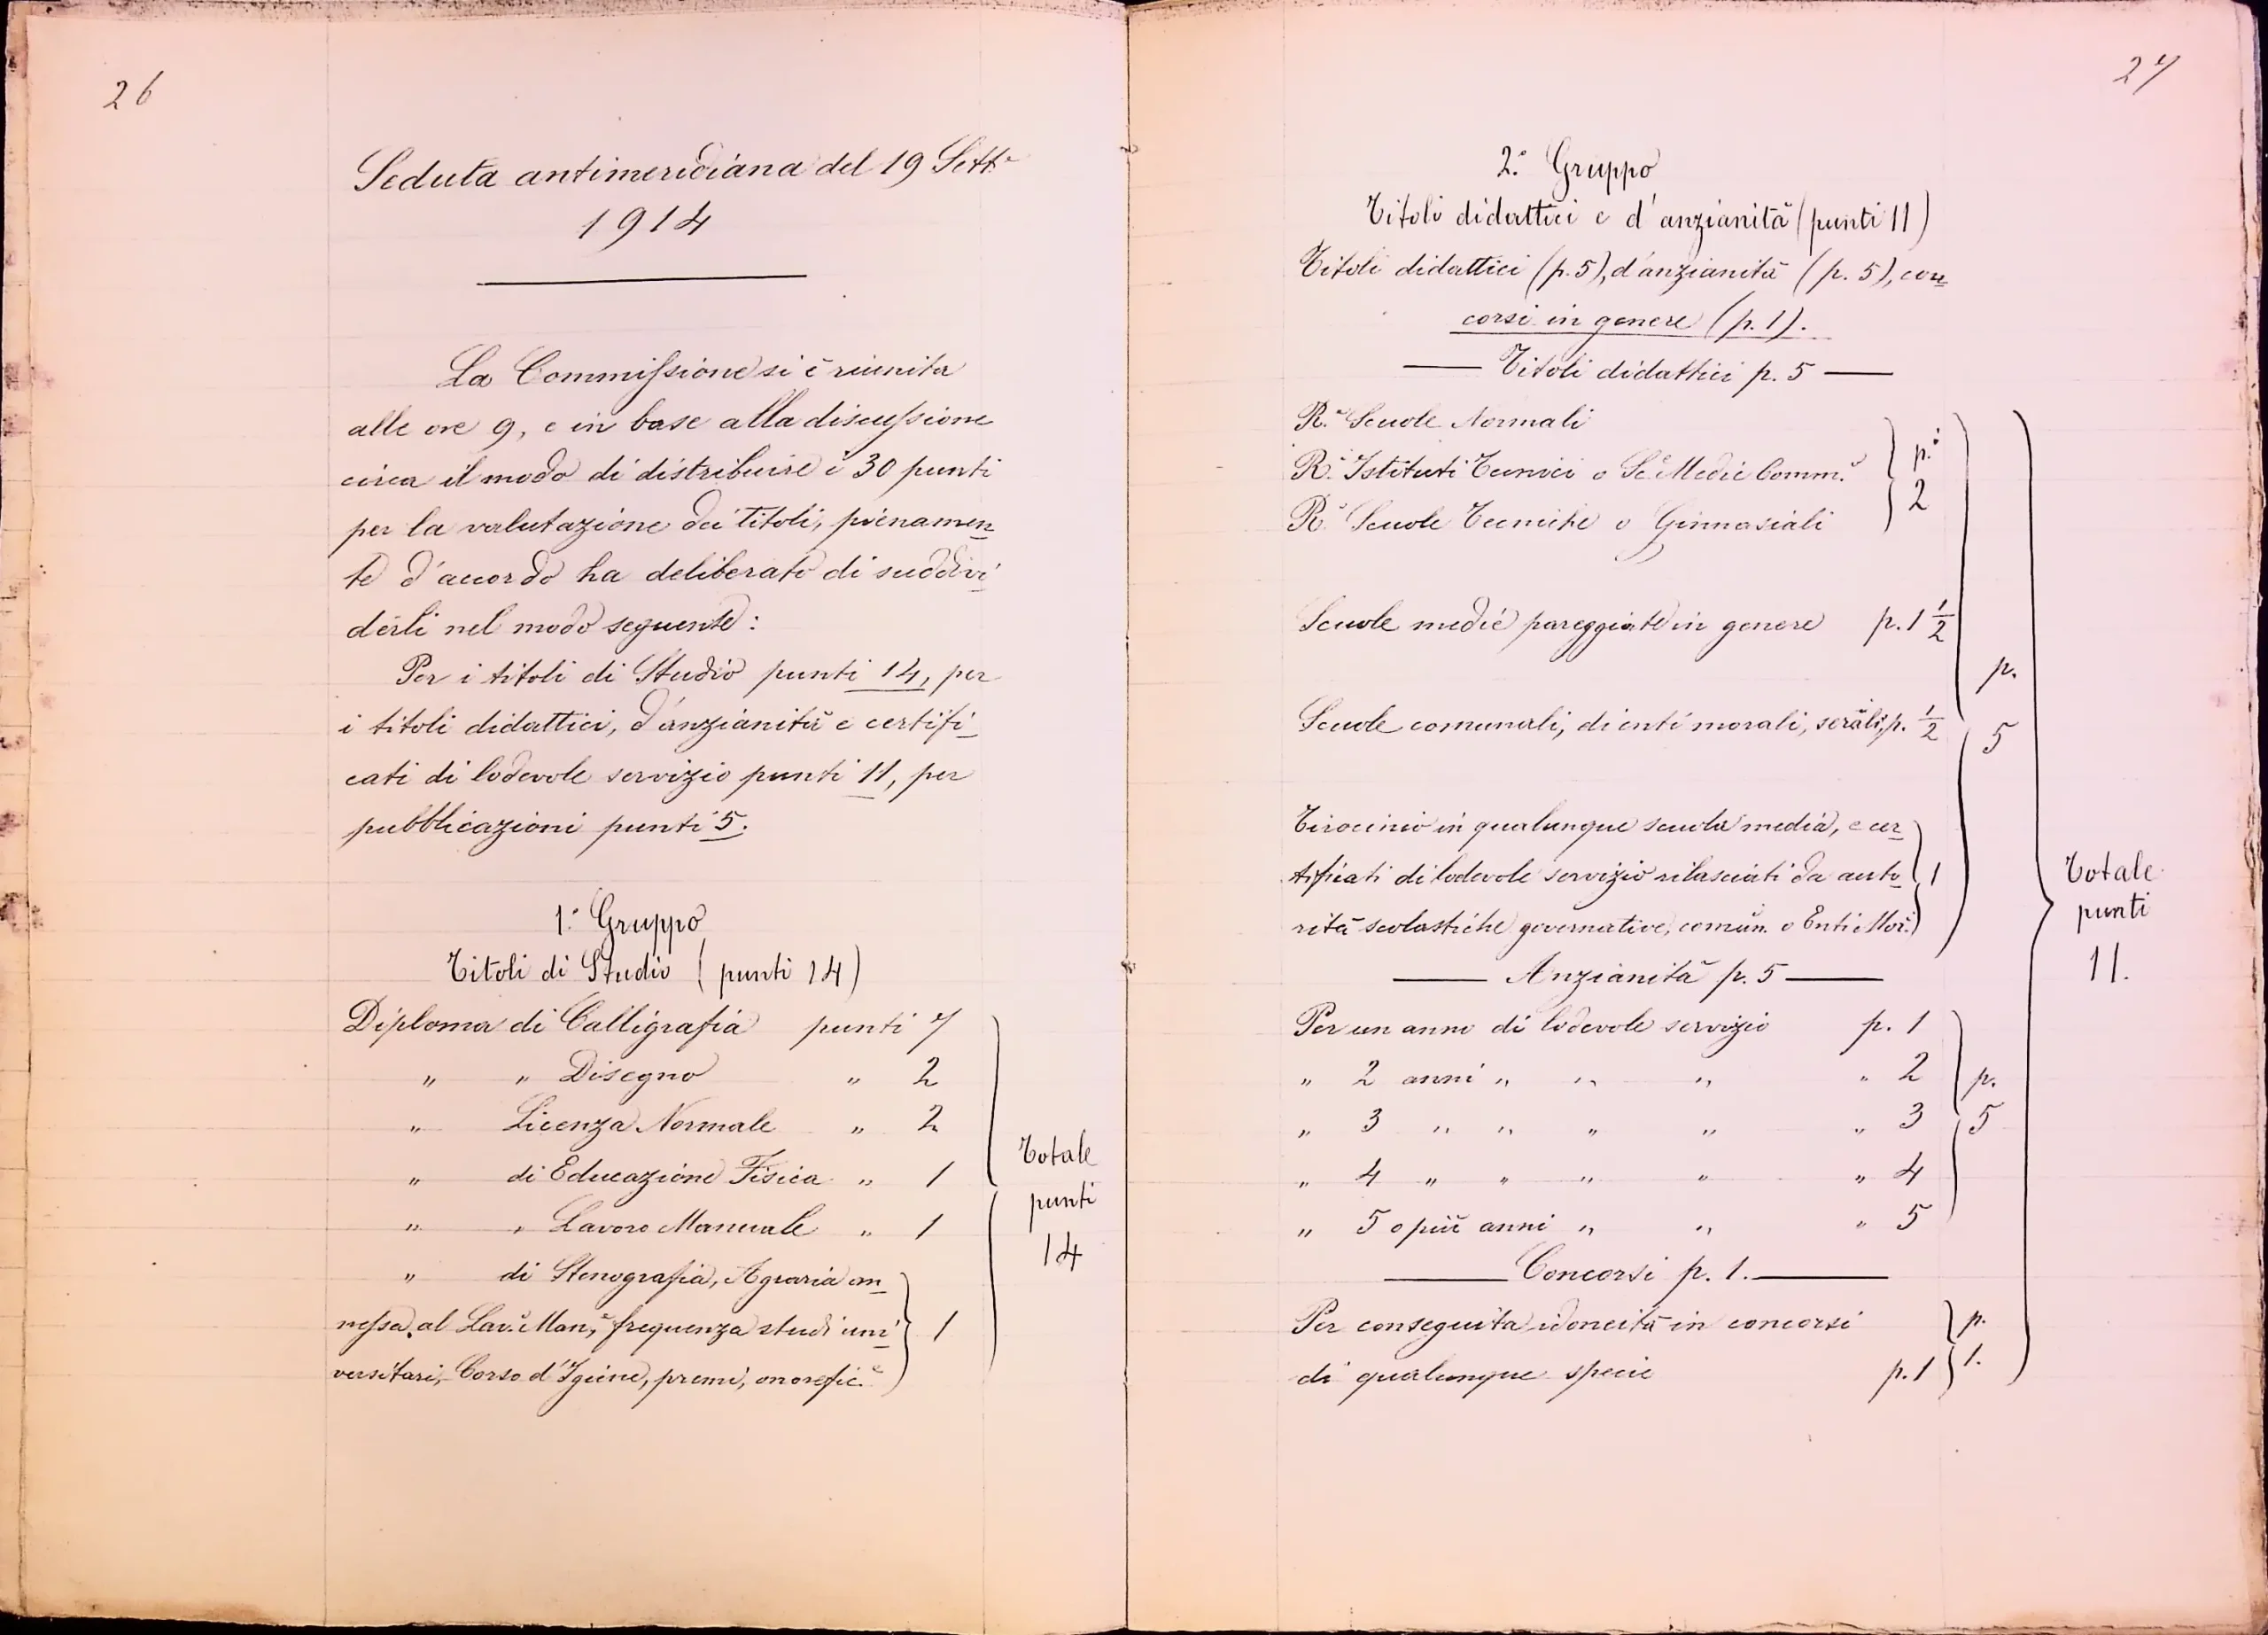 26
Seduta antimeridiana del 19 Sett.e
1914
La Commissione si è riunita
alle ore 9, e in base alla discussione
circa il modo di distribuire i 30 punti
per la valutazione dei Titoli, pienamen-
te d'accordo ha deliberato di suddivi-
derli nel modo seguente:
Per i titoli di Studio punti 14, per
i titoli didattici, d'anzianità e certifi-
cati di lodevole servizio punti 11, per
pubblicazioni punti 5.
1.° Gruppo
Titoli di Studio (punti 14)
Diploma di Calligrafia punti 7
" " Disegno " 2
" Licenza Normale " 2
" di Educazione Fisica " 1
" " Lavoro Manuale " 1
" di Stenografia, Agraria an-
nessa al Lav.° Man.e, frequenza studi uni-
versitari, Corso d'Igiene, premi, onorefic.e 1
Totale
punti
14
27
2.° Gruppo
Titoli didattici e d'anzianità (punti 11)
Titoli didattici (p. 5), d'anzianità (p. 5), con-
corsi in genere (p. 1).
Titoli didattici p. 5
R.e Scuole Normali
R.i Istituti Tecnici o Sc.e Medie Comm.i
R.e Scuole Tecniche o Ginnasiali
p.i
2
Scuole medie pareggiate in genere p. 1 1/2
Scuole comunali, di enti morali, serali, p. 1/2
Tirocinio in qualunque scuola media, e cer-
tificati di lodevole servizio rilasciati da auto-
rità scolastiche governative, comun. o Enti Mor.i
1
p.
5
Anzianità p. 5
Per un anno di lodevole servizio p. 1
" 2 anni " " " " 2
" 3 " " " " " 3
" 4 " " " " " 4
" 5 o più anni " " " 5
p.
5
Concorsi p. 1.
Per conseguita idoneità in concorsi
di qualunque specie p. 1
p.
1.
Totale
punti
11.